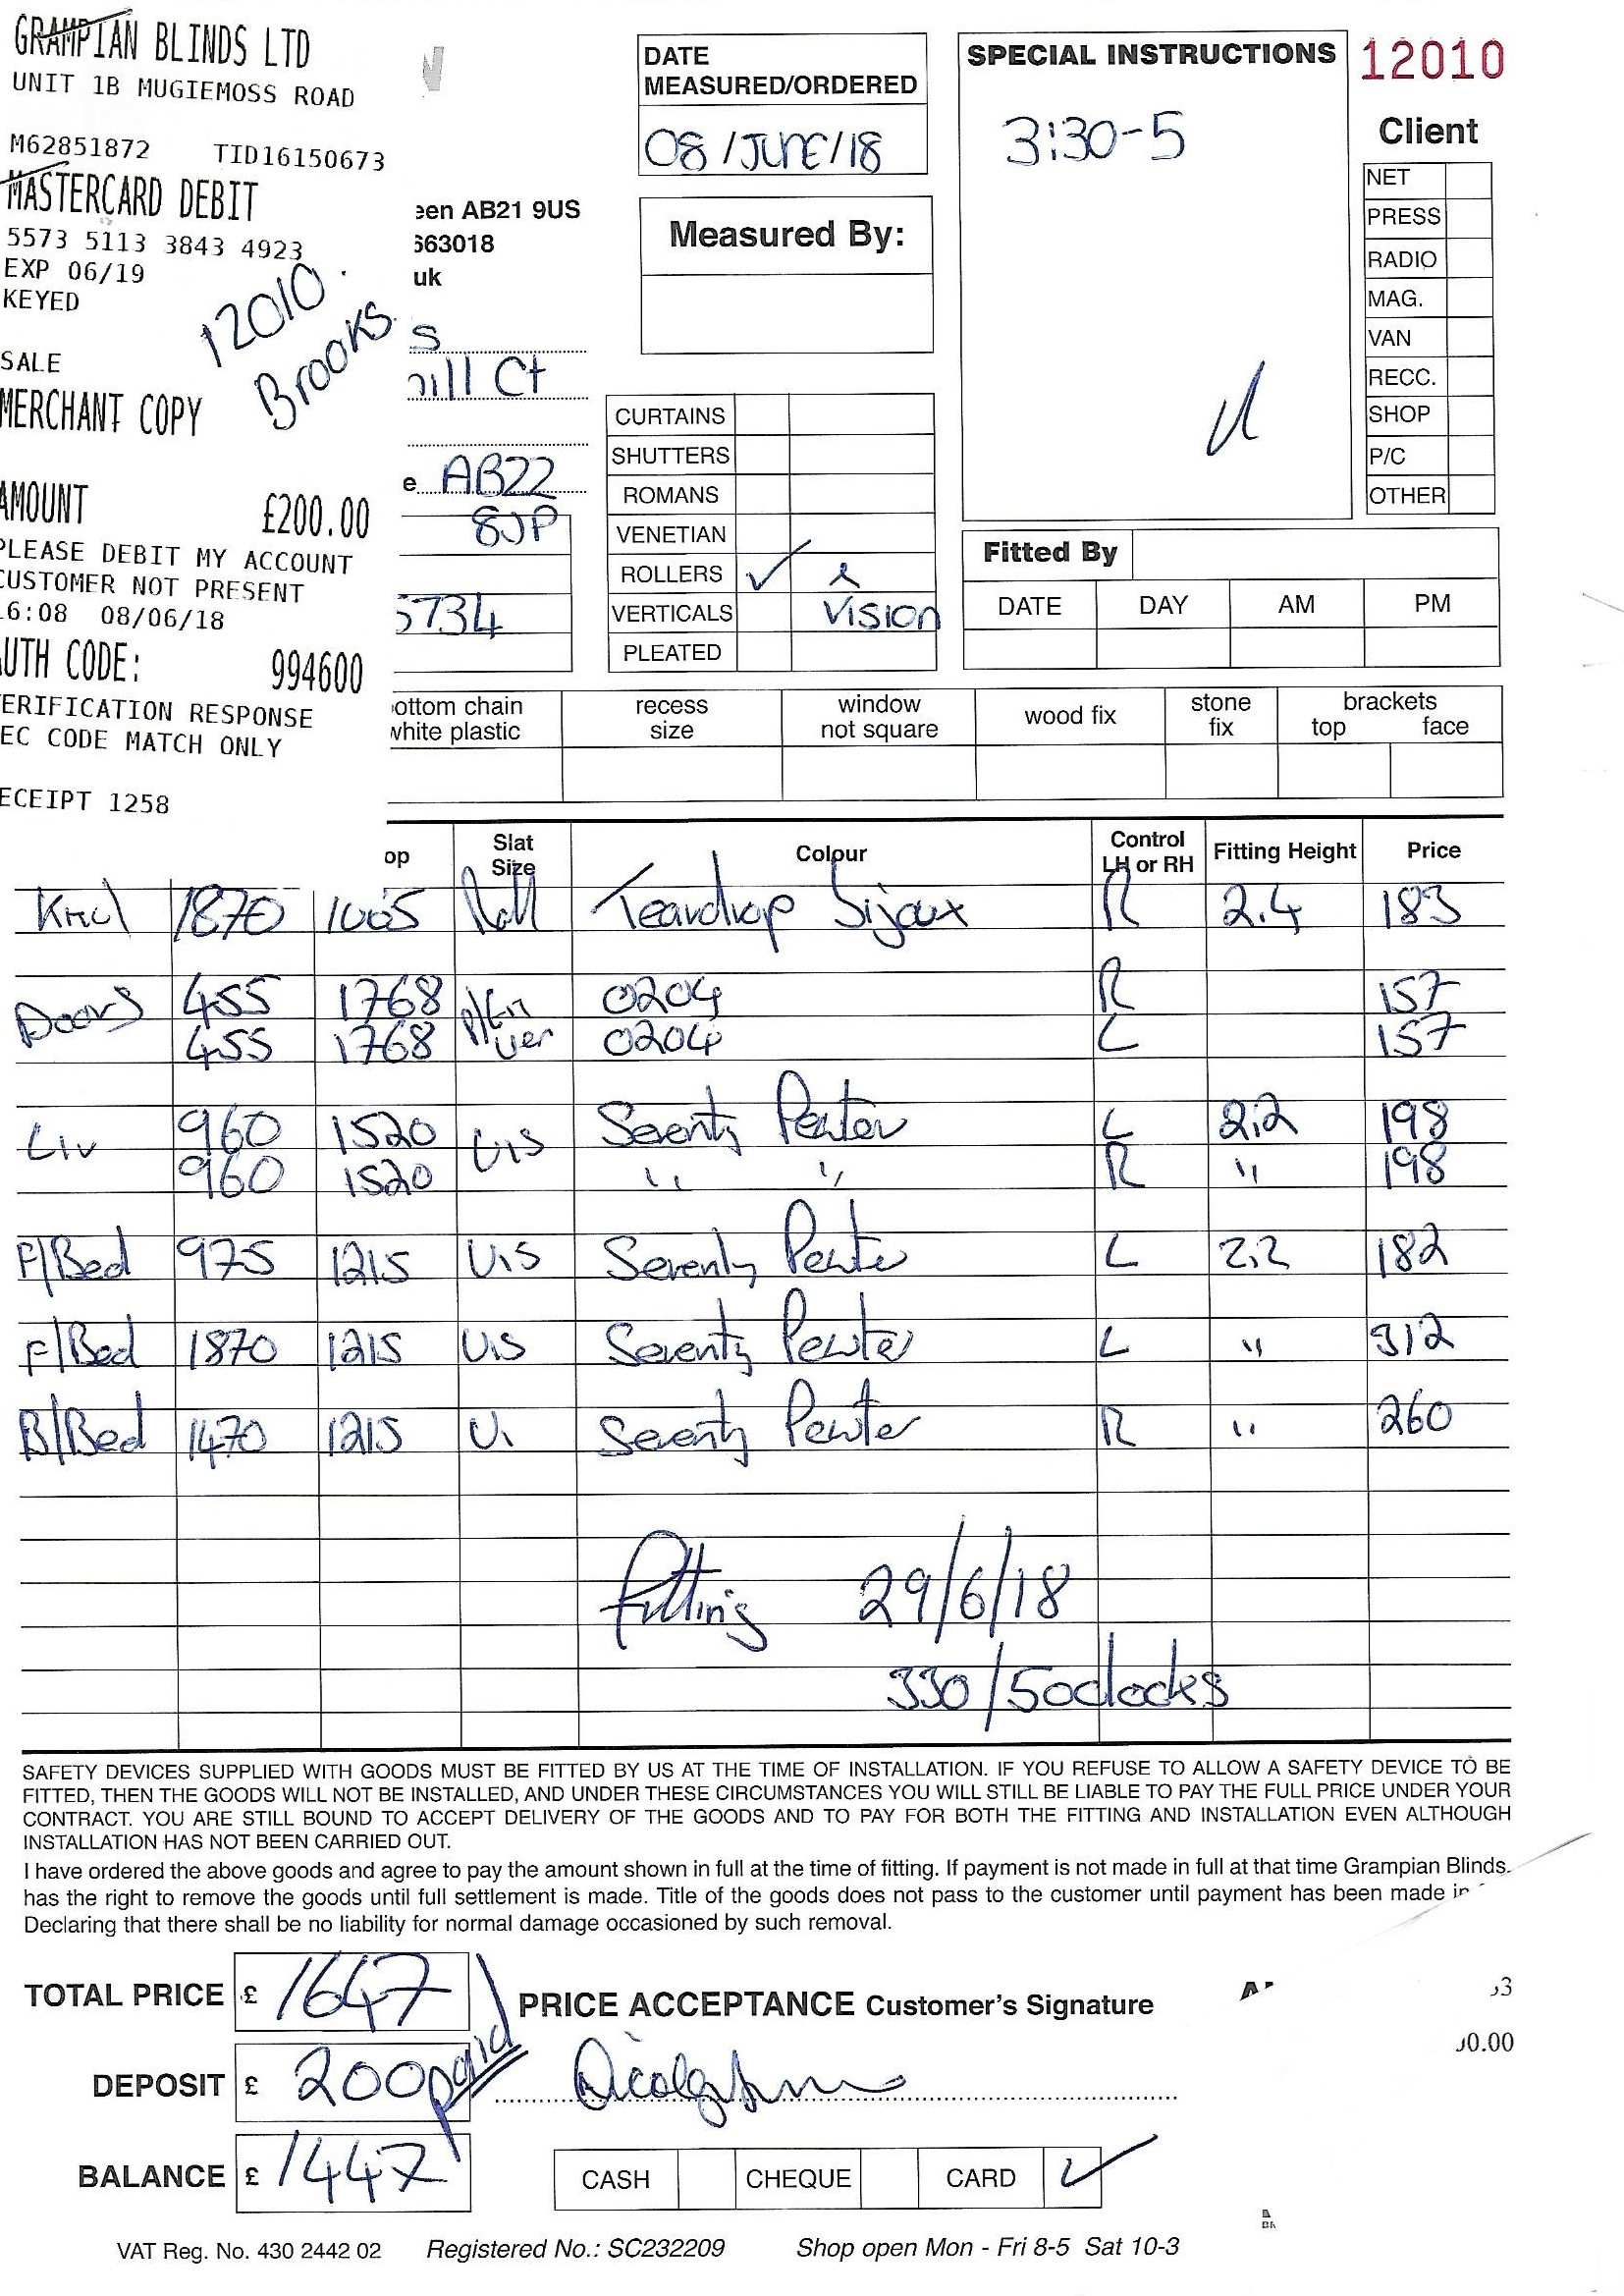 GRAMPIAN BLINDS LTD
UNIT 1B MUGIEMOSS ROAD
M62851872 TID16150673
MASTERCARD DEBIT
5573 5113 3843 4923
EXP 06/19
KEYED
12010.
Brooks
SALE
MERCHANT COPY
AMOUNT £200.00
PLEASE DEBIT MY ACCOUNT
CUSTOMER NOT PRESENT
16:08 08/06/18
AUTH CODE: 994600
ERIFICATION RESPONSE
EC CODE MATCH ONLY
ECEIPT 1258
een AB21 9US
663018
uk
s
hill Ct
e AB22
8JP
5734
DATE
MEASURED/ORDERED
08/JUNE/18
Measured By:
CURTAINS
SHUTTERS
ROMANS
VENETIAN
ROLLERS ✓ &
VERTICALS Vision
PLEATED
SPECIAL INSTRUCTIONS
3:30-5
12010
Client
NET
PRESS
RADIO
MAG.
VAN
RECC.
SHOP
P/C
OTHER
Fitted By
DATE DAY AM PM
ottom chain
white plastic
recess
size
window
not square
wood fix
stone
fix
brackets
top face
op Slat Size Colour Control LH or RH Fitting Height Price
1870 1005 Roll Teardrop Bijoux R 2.4 183
Doors 455 1768 0204 R 157
455 1768 Ver 0204 L 157
Liv 960 1520 Vis Seventy Pewter L 2.2 198
960 1520 " " R " 198
F/Bed 975 1215 Vis Seventy Pewter L 2.2 182
F/Bed 1870 1215 Vis Seventy Pewter L " 312
B/Bed 1470 1215 V. Seventy Pewter R " 260
fitting 29/6/18
330/5oclocks
SAFETY DEVICES SUPPLIED WITH GOODS MUST BE FITTED BY US AT THE TIME OF INSTALLATION. IF YOU REFUSE TO ALLOW A SAFETY DEVICE TO BE
FITTED, THEN THE GOODS WILL NOT BE INSTALLED, AND UNDER THESE CIRCUMSTANCES YOU WILL STILL BE LIABLE TO PAY THE FULL PRICE UNDER YOUR
CONTRACT. YOU ARE STILL BOUND TO ACCEPT DELIVERY OF THE GOODS AND TO PAY FOR BOTH THE FITTING AND INSTALLATION EVEN ALTHOUGH
INSTALLATION HAS NOT BEEN CARRIED OUT.
I have ordered the above goods and agree to pay the amount shown in full at the time of fitting. If payment is not made in full at that time Grampian Blinds
has the right to remove the goods until full settlement is made. Title of the goods does not pass to the customer until payment has been made in
Declaring that there shall be no liability for normal damage occasioned by such removal.
TOTAL PRICE £ 1647
PRICE ACCEPTANCE Customer's Signature
33
00.00
DEPOSIT £ 200 paid
BALANCE £ 1447
CASH CHEQUE CARD ✓
VAT Reg. No. 430 2442 02 Registered No.: SC232209 Shop open Mon - Fri 8-5 Sat 10-3